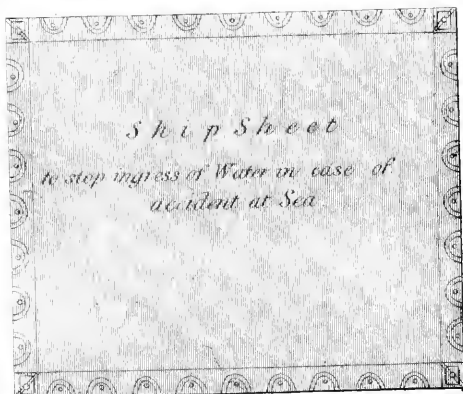 Ship Sheet
to stop ingress of Water in case of
accident at Sea